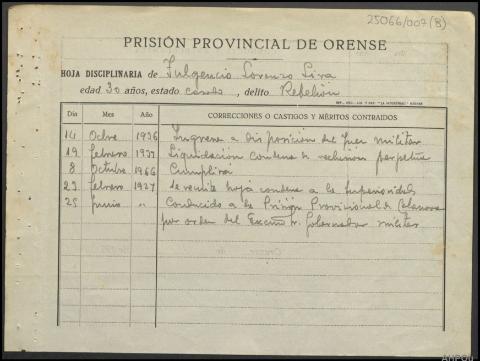 25066/007(8)
PRISIÓN PROVINCIAL DE ORENSE
HOJA DISCIPLINARIA de Fulgencio Lorenzo Lira
edad 30 años, estado casado, delito Rebelión
Día Mes Año CORRECCIONES O CASTIGOS Y MÉRITOS CONTRAIDOS
14 Octbre 1936 Ingresa a disposición del Juez militar
19 febrero 1937 Liquidación condena de reclusión perpetua
8 Octubre 1966 Cumplira
23 febrero 1937 Se remite hoja condena a la Superioridad
25 Junio " Conducido a la Prisión Provincial de Celanova
por orden del Excmo Sr. Gobernador militar